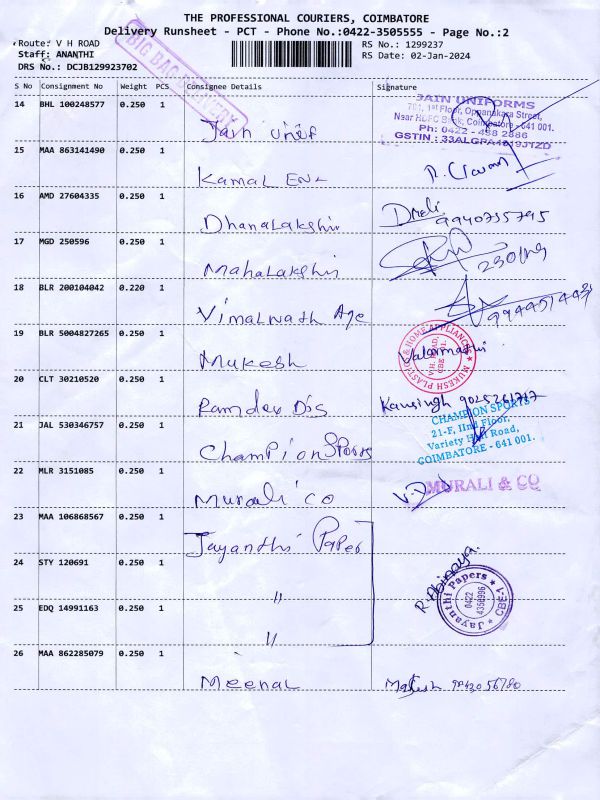 THE PROFESSIONAL COURIERS, COIMBATORE
Delivery Runsheet - PCT - Phone No.:0422-3505555 - Page No.:2
Route: V H ROAD
RS No.: 1299237
Staff: ANANTHI
RS Date: 02-Jan-2024
DRS No.: DCJB129923702
BIG BAG DELIVERY
S No Consignment No Weight PCS Consignee Details Signature
14 BHL 100248577 0.250 1
Jain Unif
JAIN UNIFORMS
701, 1st Floor, Oppanakara Street,
Near HDFC Bank, Coimbatore - 641 001.
Ph: 0422 - 438 2886
15 MAA 863141490 0.250 1
Kamal Ent
16 AMD 27604335 0.250 1
Dhanalakshmi
9940735795
17 MGD 250596 0.250 1
Mahalakshmi
18 BLR 200104042 0.220 1
Vimalnath Age
19 BLR 5004827265 0.250 1
Mukesh
MUKESH PLASTIC & HOME APPLIANCES
V.H. ROAD,
CBE - 1.
Valarmathi
20 CLT 30210520 0.250 1
Ramdev Dis
21 JAL 530346757 0.250 1
Champion Sports
CHAMPION SPORTS
21-F, IInd Floor,
Variety Hall Road,
COIMBATORE - 641 001.
22 MLR 3151085 0.250 1
Murali Co
MURALI & CO
23 MAA 106868567 0.250 1
Jayanthi Paper
24 STY 120691 0.250 1
"
R. Abinaya.
Jayanthi Papers
CBE-1
0422
4350996
25 EDQ 14991163 0.250 1
"
26 MAA 862285079 0.250 1
Meenal
Makesh 9843056780